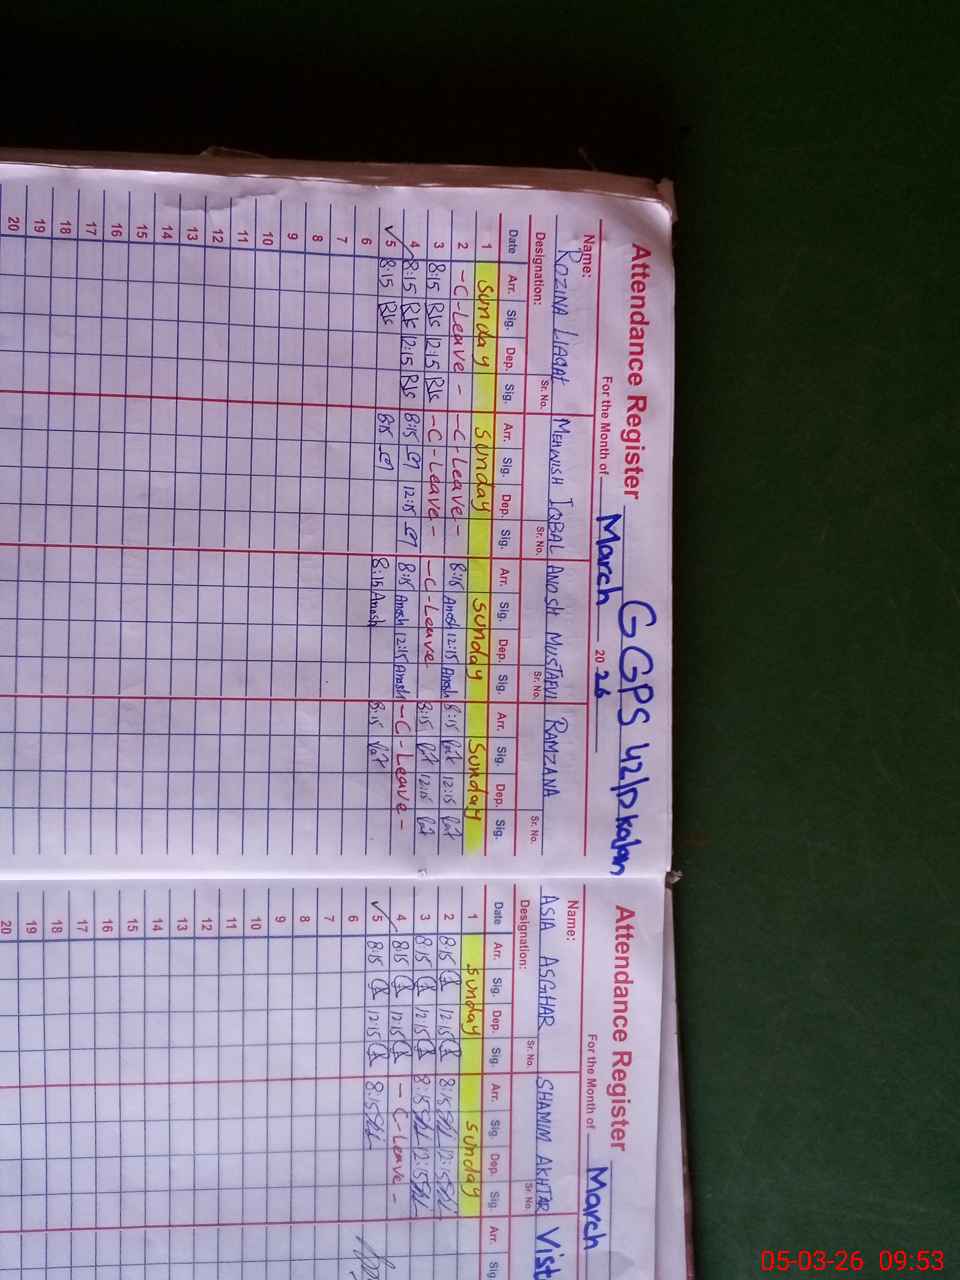 Attendance Register GGPS 42/D kalan
For the Month of March 2026
Name: ROZINA LIAQAT MEHWISH IQBAL ANOSH MUSTAFVI RAMZANA
Designation: Sr. No. Sr. No. Sr. No. Sr. No.
Date Arr. Sig. Dep. Sig. Arr. Sig. Dep. Sig. Arr. Sig. Dep. Sig. Arr. Sig. Dep. Sig.
1 Sunday Sunday Sunday Sunday
2 -C-Leave- -C-Leave- 8:15 Anosh 12:15 Anosh 8:15 12:15
3 8:15 12:15 -C-Leave- -C-Leave 8:15 12:15
4 8:15 12:15 8:15 12:15 8:15 Anosh 12:15 Anosh -C-Leave-
5 8:15 8:15 8:15 Anosh 8:15
6
7
8
9
10
11
12
13
14
15
16
17
18
19
20
Attendance Register
For the Month of March
Name: ASIA ASGHAR SHAMIM AKHTAR Vist
Designation: Sr. No. Sr. No.
Date Arr. Sig. Dep. Sig. Arr. Sig. Dep. Sig. Arr. Sig.
1 Sunday Sunday
2 8:15 12:15 8:15 12:15
3 8:15 12:15 8:15 12:15
4 8:15 12:15 -C-Leave-
5 8:15 12:15 8:15
6
7
8
9
10
11
12
13
14
15
16
17
18
19
20
05-03-26 09:53